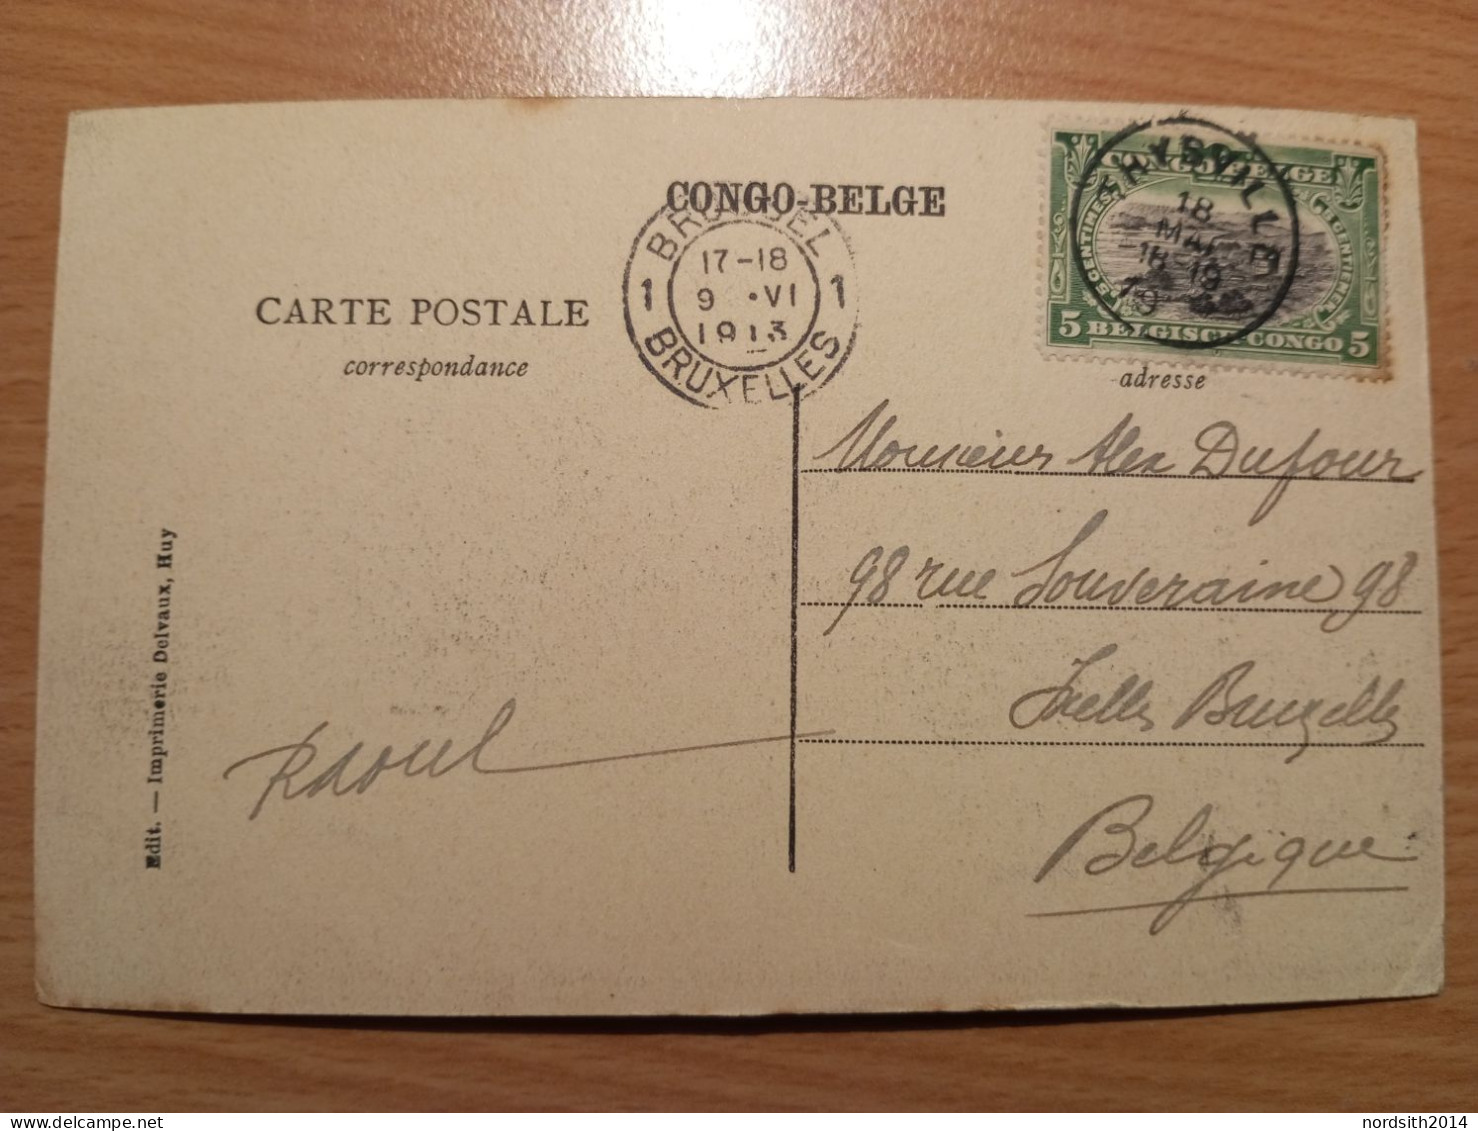 CONGO-BELGE
CARTE POSTALE
correspondance
adresse
1 BRUSSEL 1
17-18
9 ·VI
1913
BRUXELLES
THYSVILLE
18
MAI
-18-19
19
CONGO BELGE
5 CENTIMES
CENTIEMEN
5 BELGISCH-CONGO 5
Monsieur Alex Dufour
98 rue Souveraine 98
Ixelles Bruxelles
Belgique
Raoul
Edit. — Imprimerie Delvaux, Huy
delcampe.net
nordsith2014